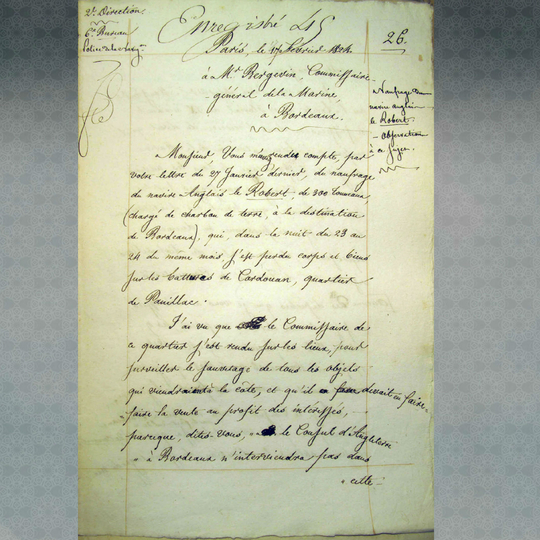 2e Direction
6e Bureau
Enregistré 45
26.
Paris, le 17 février 1824.
à Mr Bergevin, Commissaire
général de la Marine,
à Bordeaux.
Naufrage du
navire anglais
le Robert.
Observations
à ce sujet.
Monsieur Vous m'avez rendu compte, par
votre lettre du 27 Janvier dernier, du naufrage
du navire Anglais le Robert, de 300 tonneaux
(chargé de charbon de terre, à la destination
de Bordeaux), qui, dans la nuit du 23 au
24 du même mois, s'est perdu corps et biens
sur les de Cordouan, quartier
de Pauillac.
J'ai vu que le Commissaire de
ce quartier s'est rendu sur les lieux, pour
surveiller le sauvetage de tous les objets
qui viendraient à la côte, et qu'il devait en faire
faire la vente au profit des intéressés,
parceque, dites-vous, « le Consul d'Angleterre
« à Bordeaux n'interviendra pas dans
« cette